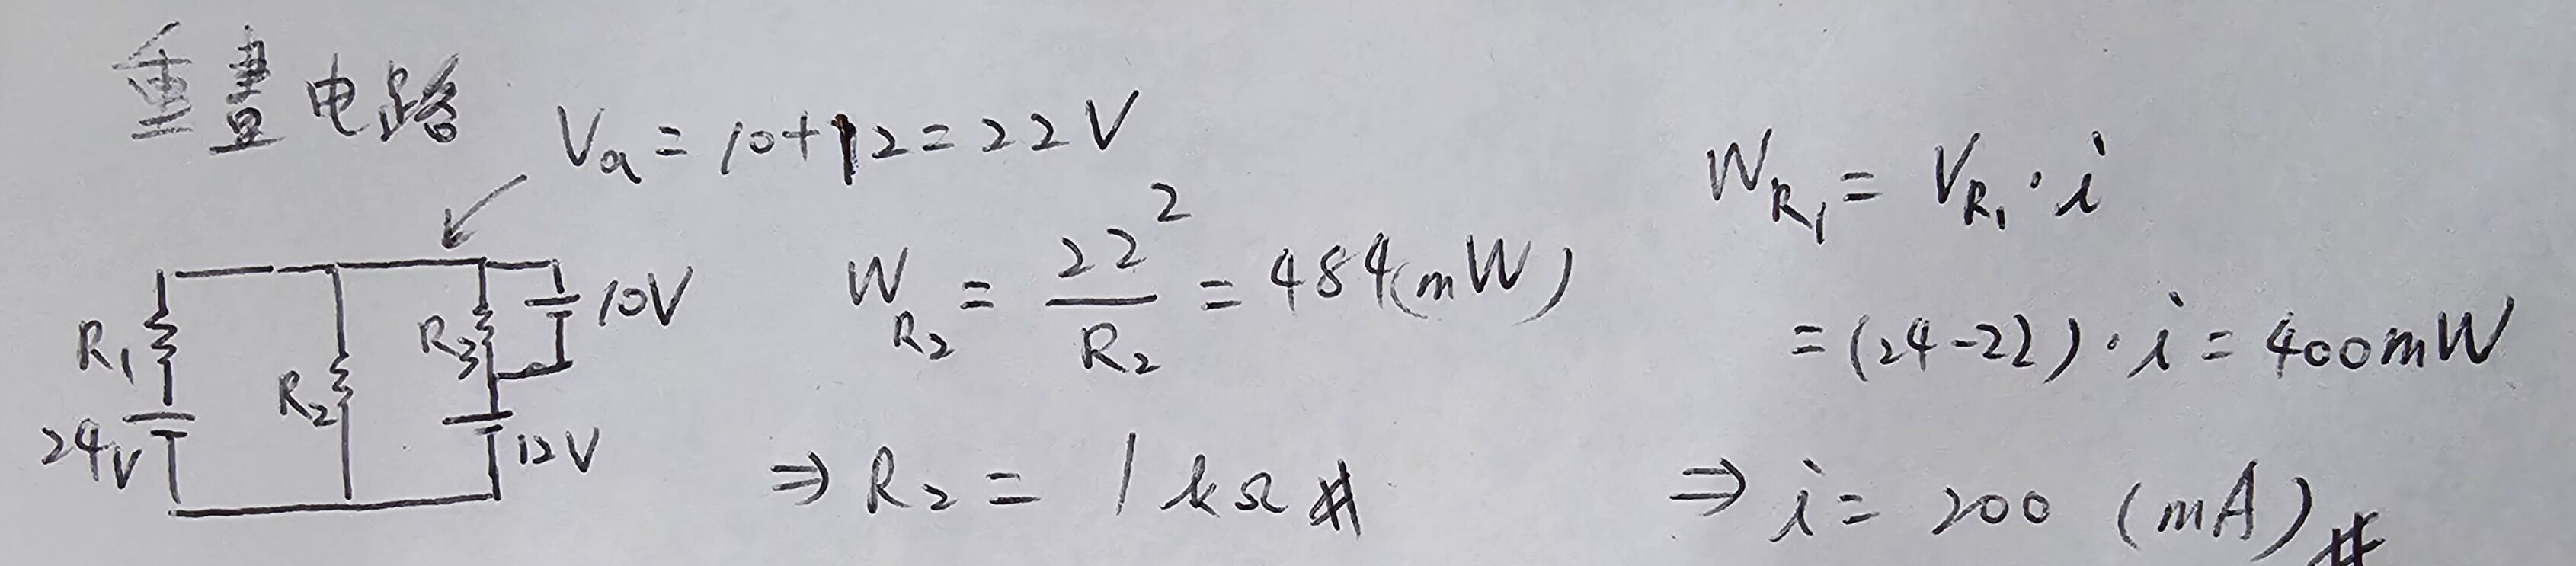 重畳电路
Va = 10+12=22V
R1
24V
R2
R3
10V
12V
W_R2 = 22²/R2 = 484(mW)
⇒ R2 = 1kΩ #
W_R1 = V_R1 · i
=(24-22) · i = 400mW
⇒ i = 200 (mA) #